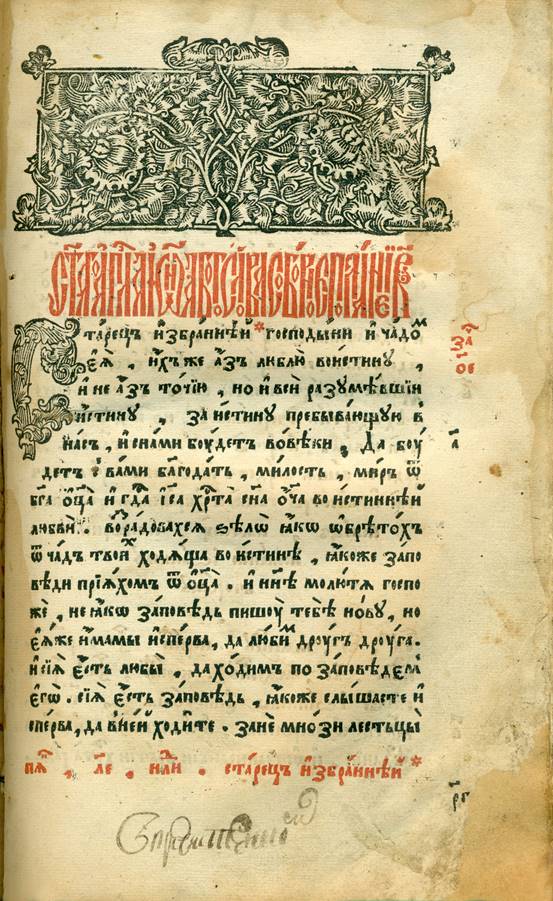 Ста́рецъ и҆збра́ннѣй * господы́ни и҆ ча́дом
є҆ѧ̀ , и҆́хъже а҆́зъ люблю̀ вои́стину ,
и҆ не а҆́зъ то́чїю , но и҆ всѝ разꙋмѣ́вшїи
и҆́стину , за и҆́стину пребыва́ющую в
на́съ , и҆ сна́ми бꙋ́детъ вовѣ́ки . Да боу́
детъ с ва́ми блгода́ть , ми́лость , ми́ръ ѿ
бг҃а ѻ҆ц҃а̀ и҆ гдⷭ҇а і҆с҃а хрⷭ҇та̀ сн҃а ѻ҆́ч҃а во и҆́стиннѣй
любвѝ . возра́довахсѧ ѕѣлѡ̀ ꙗ҆́кѡ ѡ҆брѣто́хъ
ѿ ча́дъ твои́х ходѧ́ща во и҆́стинѣ , ꙗ҆́коже запо
вѣди прїѧ́хомъ ѿ ѻ҆ц҃а̀ . и҆ нн҃ѣ молю́тѧ госпо
жѐ , не ꙗ҆́кѡ за́повѣдь пишоу̀ тебѣ̀ но́ву , но
ю҆́же и҆́мамы и҆спе́рва , да лю́бим дроу́гъ дроу́га .
и҆ сїѧ̀ є҆́сть любы̀ , да хо́димъ по за́повѣдем
є҆гѡ̀ . сїѧ̀ є҆́сть за́повѣдь , ꙗ҆́коже слы́шасте и҆
спе́рва , да в не́й хо́дите . занѐ мно́зи лестьцы̀
за҃
ое
а҃
пѧ҃ , л҃е , и҆лѝ . ста́рецъ и҆збра́ннѣй *
р҃г